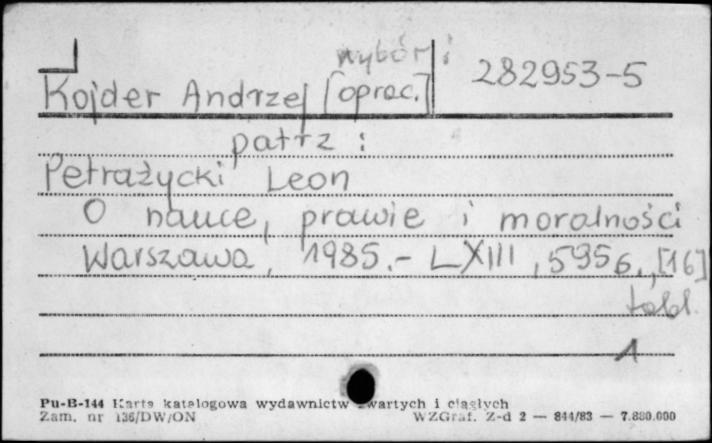 wybór i
Kojder Andrzej [oprac.] 282953-5
patrz :
Petrażycki Leon
O nauce, prawie i moralności
Warszawa, 1985.- LXIII, 595 s., [16]
tabl.
1
Pu-B-144 Karta katalogowa wydawnictw zwartych i ciągłych
Zam. nr 136/DW/ON WZGraf. Z-d 2 — 844/83 — 7.880.000